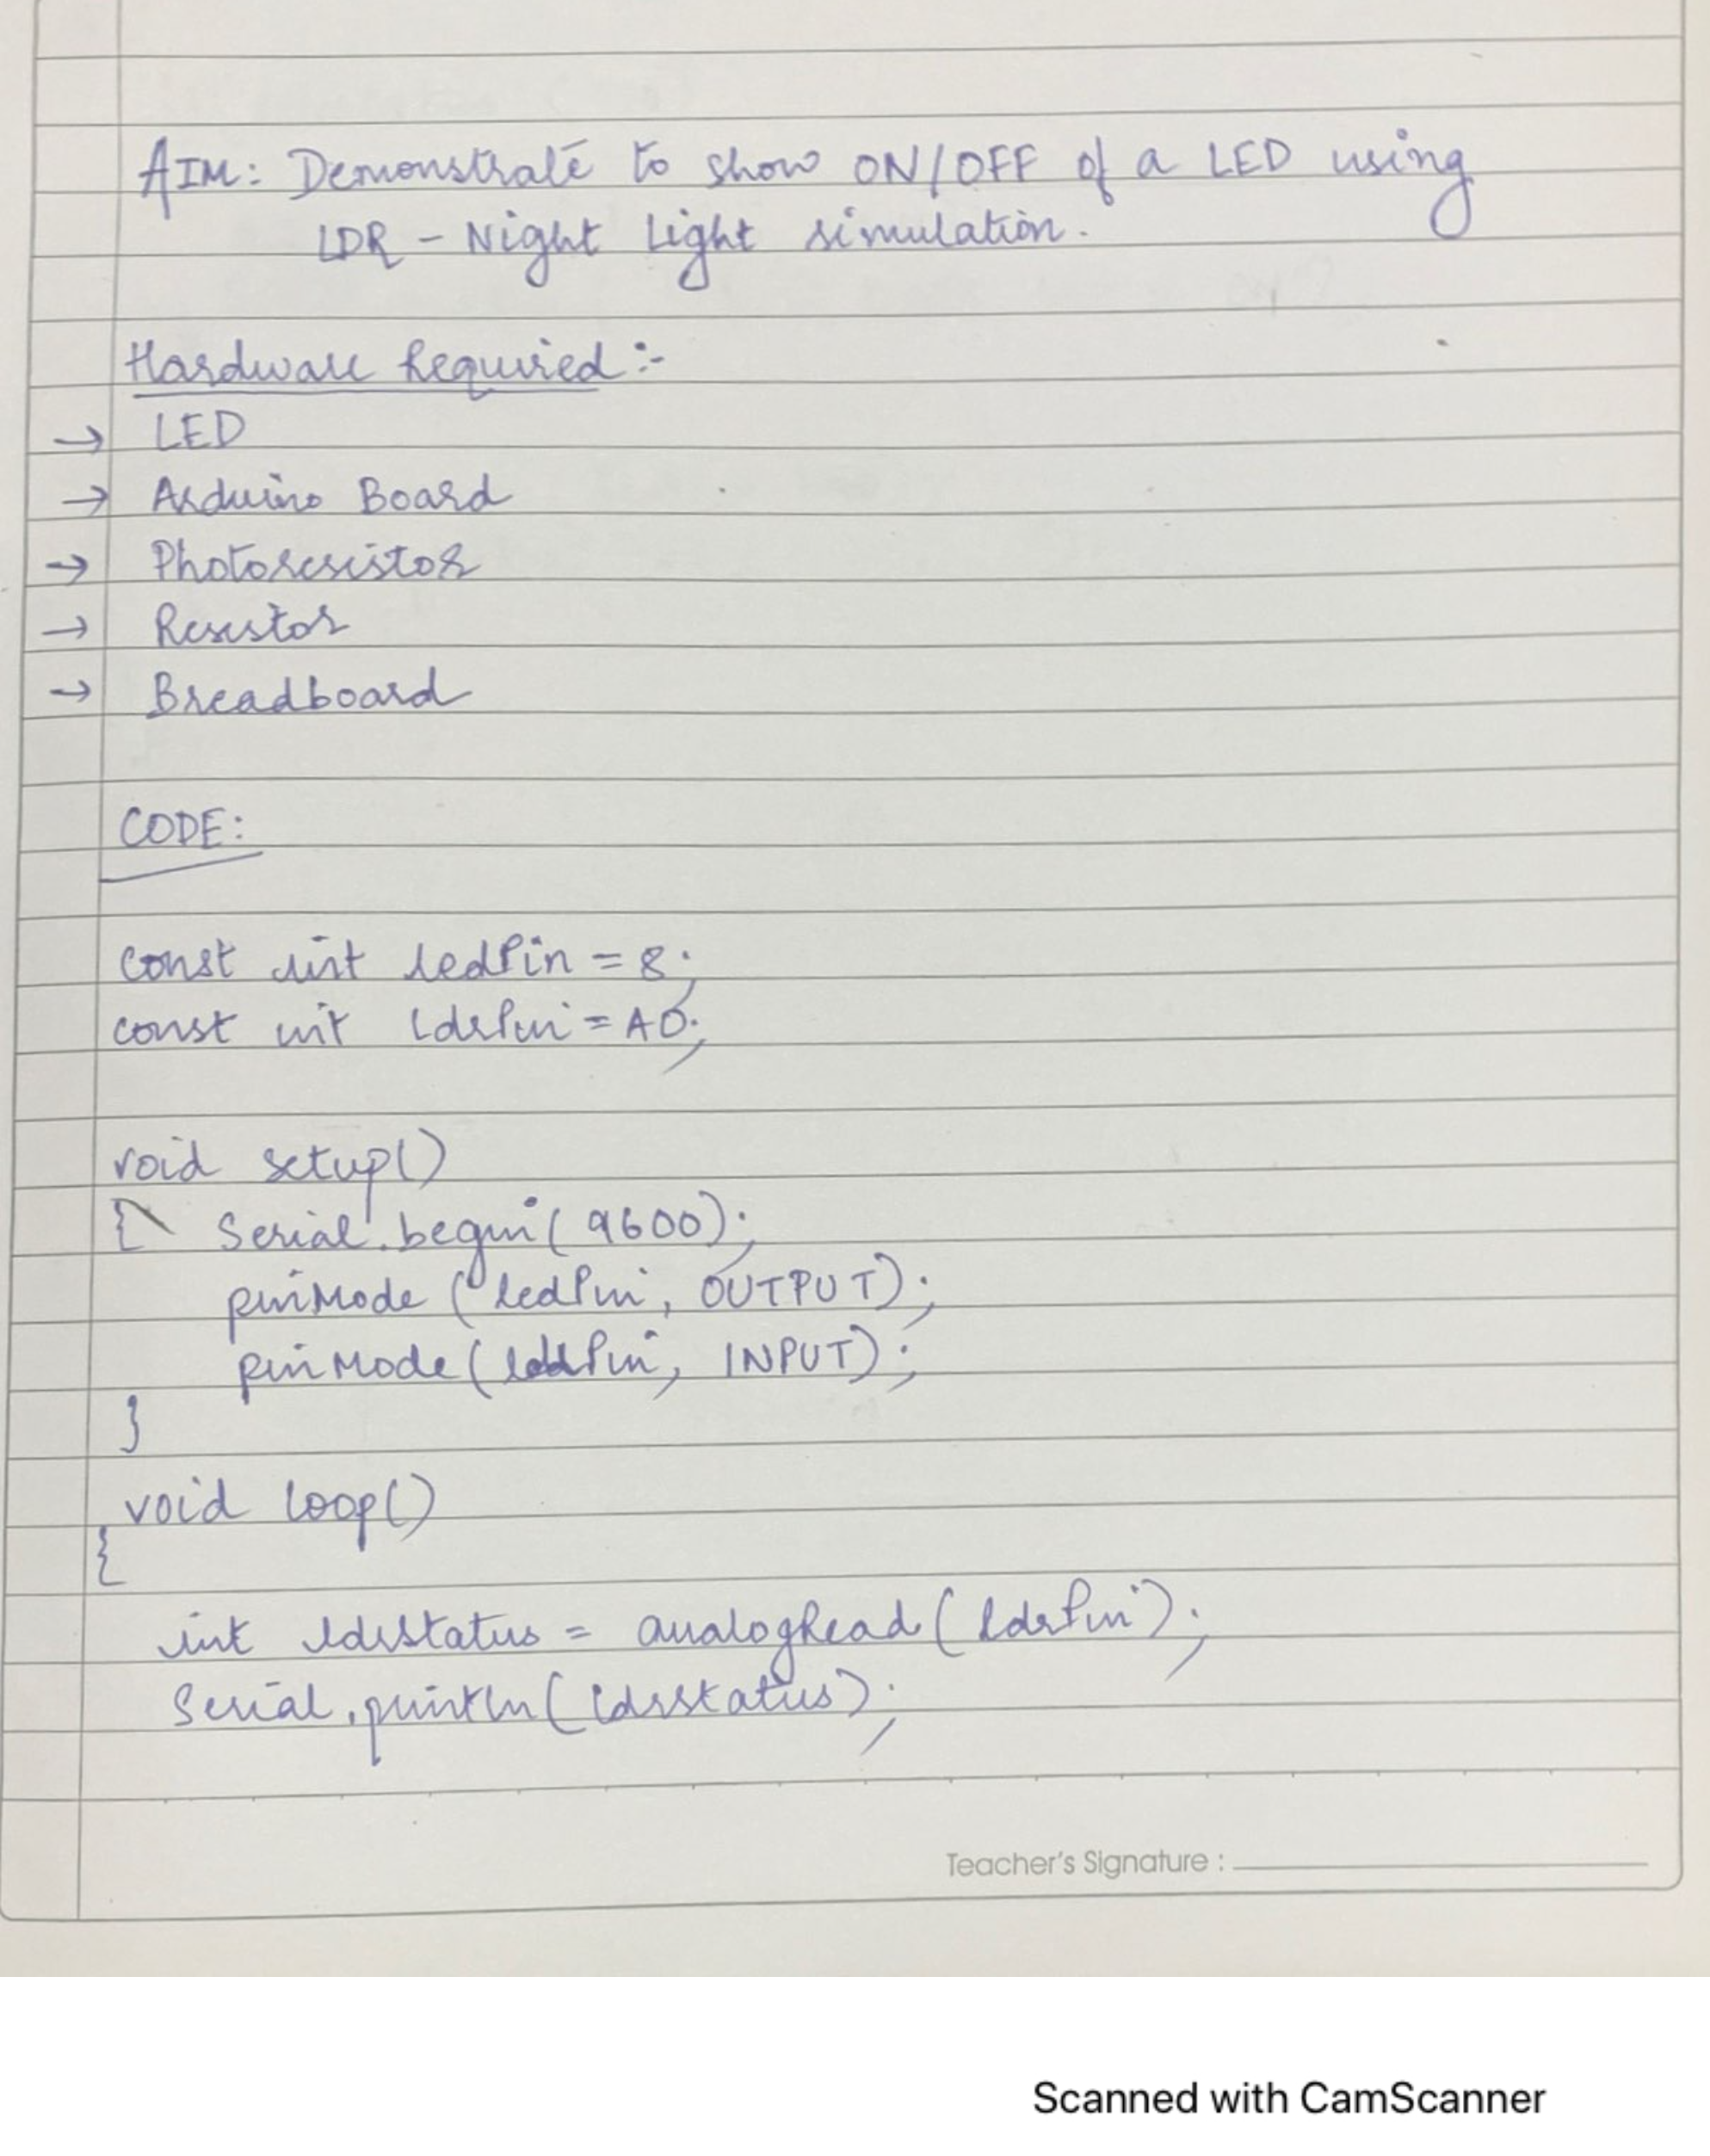 AIM: Demonstrate to show ON/OFF of a LED using
LDR - Night Light simulation.
Hardware Required :-
→ LED
→ Arduino Board
→ Photoresistor
→ Resistor
→ Breadboard
CODE:
const int ledPin = 8;
const int ldrPin = A0;
void setup()
{ Serial.begin(9600);
pinMode (ledPin, OUTPUT);
pinMode (ldrPin, INPUT);
}
void loop()
{
int ldrstatus = analogRead (ldrPin);
Serial.println (ldrstatus);
Teacher's Signature :
Scanned with CamScanner